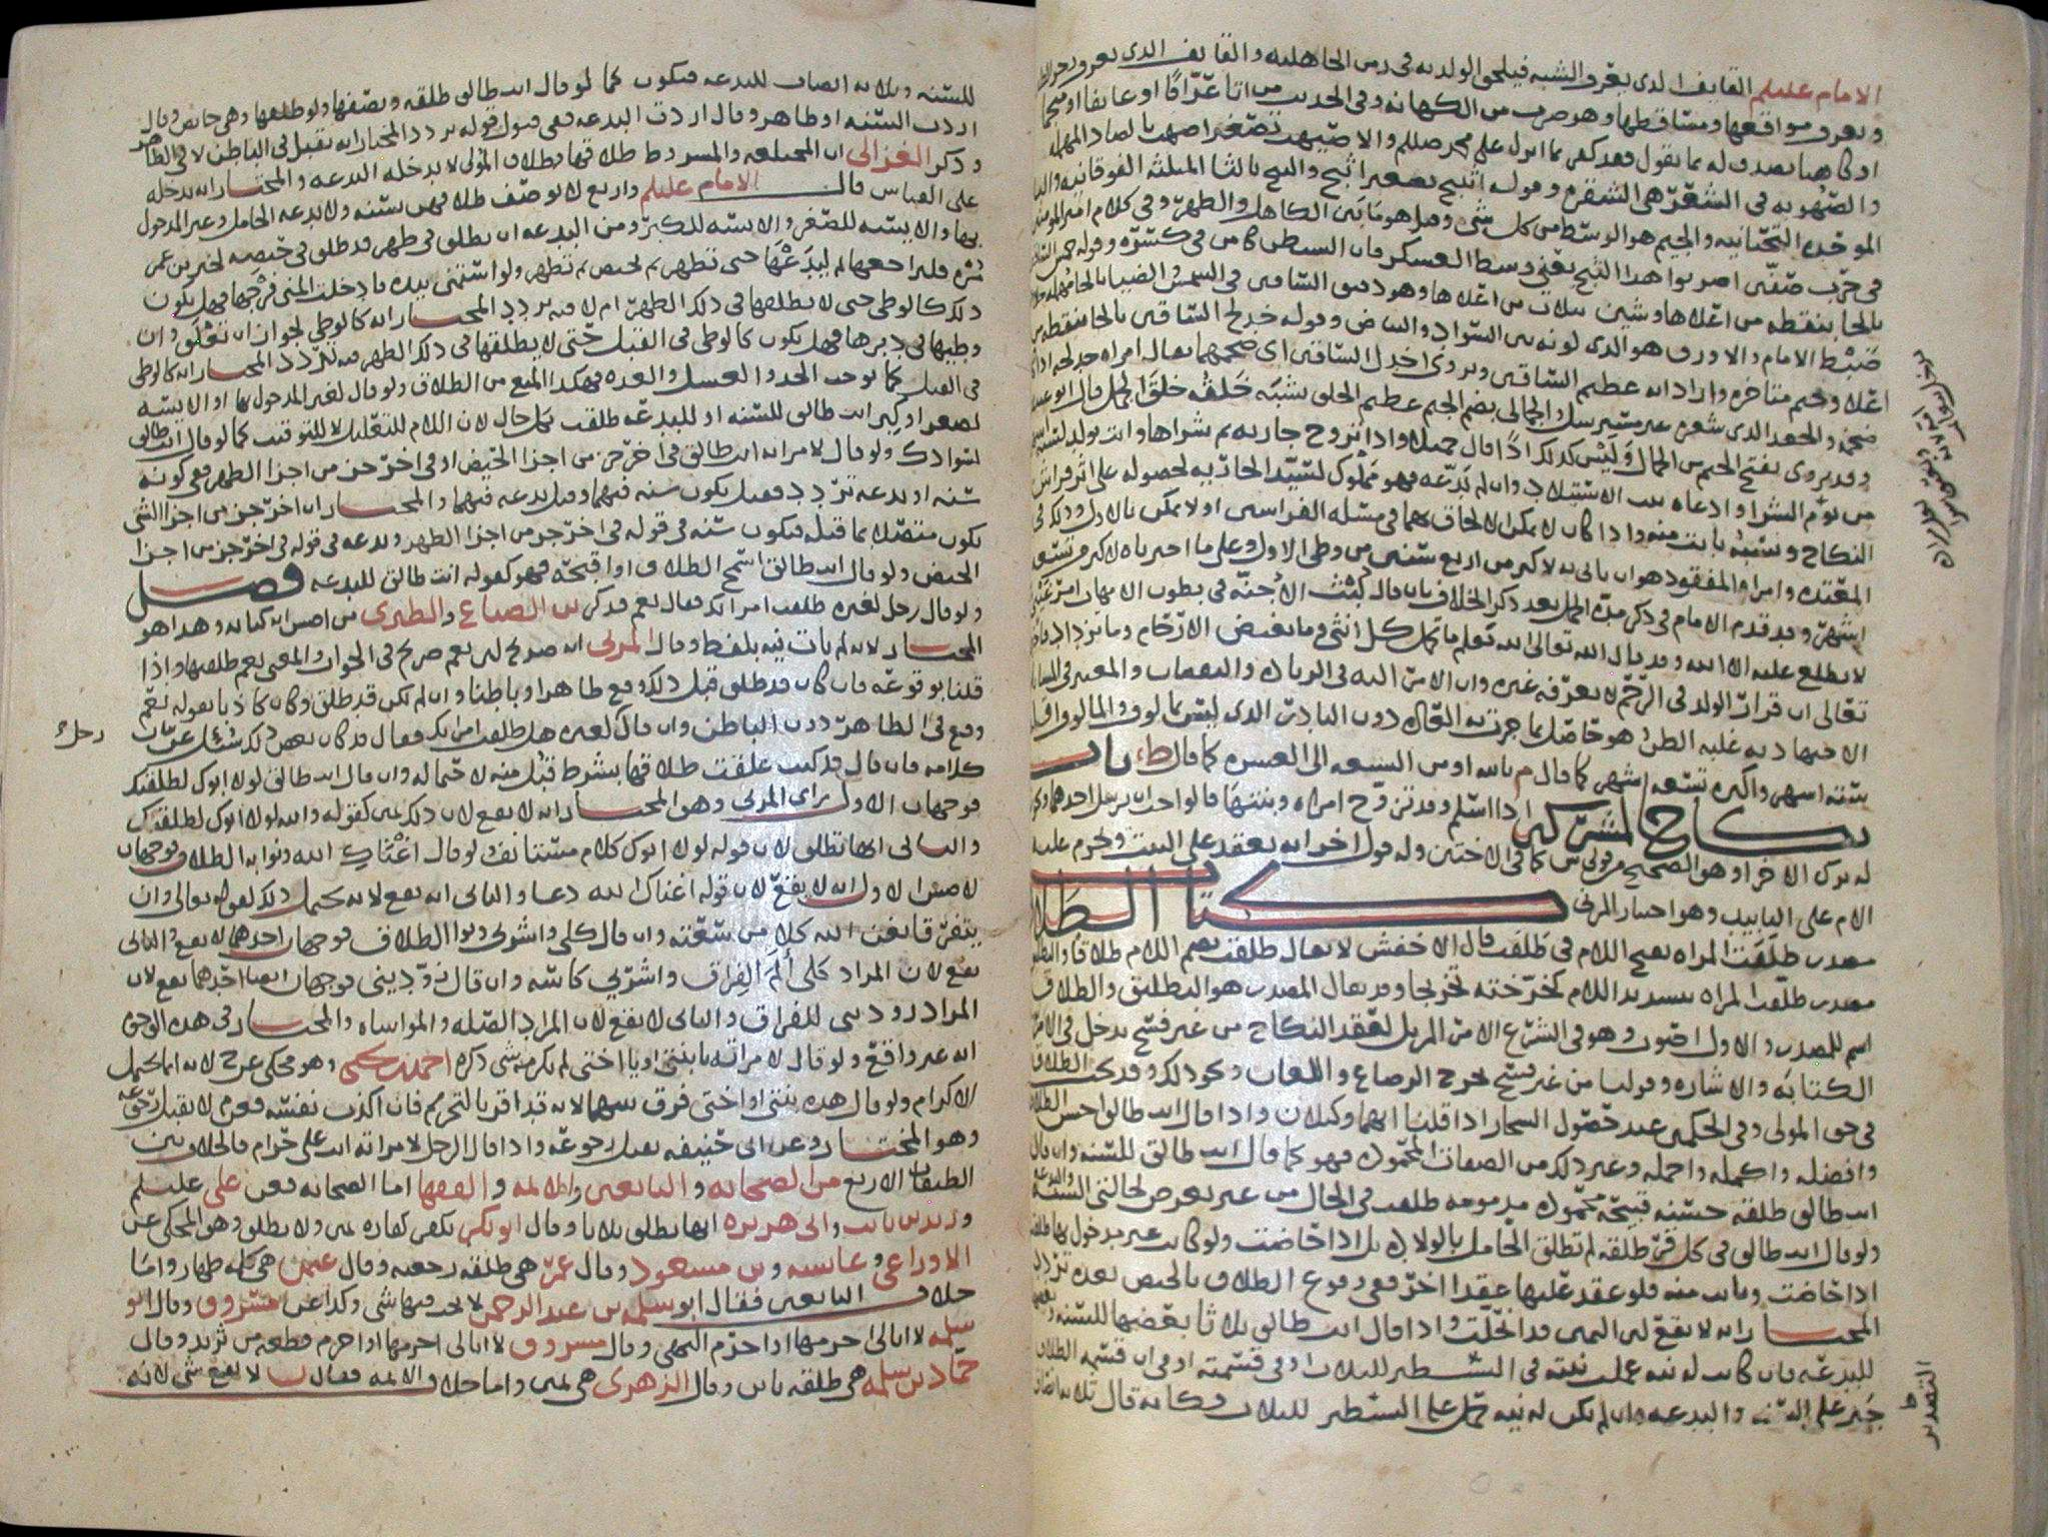 الامام عليلم القايف الدى يعرف الشبه فيلحق الولد به فى زمن الجاهليه والقايف الدى يعرف
ويعرف مواقعها ومساقطها وهو ضرب من الكهانه وفى الحديث من اتا عرّافًا او عايفا او منجما
او كاهنا يصدقه بما يقول فقد كفر بما انزل على محمد صللم والاصيهب تصغير اصهب بالصاد المهمله
والصُهُوبه فى الشعر هى الشقره وقوله اثيبج تصغير اثبج والثبج بالثا المثلثه الفوقانيه والبا
الموحده التحتانيه والجيم هو الوسط من كل شى وقيل هو ما بين الكاهل والظهر وفى كلام امير المومنين
فى حرب صفّين اضربوا هذا الثبج يعنى وسط العسكر فان الشيطان كامن فى كسره وقوله حمش الساقين
بالحا بنقطه من اعلاها وشين بثلاث من اعلاها وهو دقيق الساقين
ضبْط الامام والاورق هو الدى لونه بين السواد والبياض وقوله خدلج الساقين بالخا بنقطه من
اعلا وجيم متاخره واراد انه عظيم الساقين ويروى اخدل الساقين اى ضخمهما يقال امراه خدلجه اذا
ضخم والجعد الدى شعره غير مسترسل والجمالى بضم الجيم عظيم الخلق يشبه خَلقُه خلقَ الجمل قال ابو عبيد
وقد يروى بفتح الجيم من الجمال وَلَيْس كذلك اذًا قال جميلا واذا تزوج جاريه ثم شراها واتت بولد لسته اشهر
من يوم الشرا وادعاه ثبت الاستيلاد وان لم يدّعه فهو مملوك لسيّد الجاريه لحصوله على اثر فراش
النكاح ونسبُهُ ثابت منه واذا كان لا يمكن الالحاق بهما فى مسئله الفراشين او لا يمكن بالاول وذلك فى
المعتده وامراه المفقود هو ان ياتى به لاكثر من اربع سنين من وطى الاول وعلى ما اخبرناه لاكثر من تسعه
اشهر وقد قدم الامام فى ذكر مده الحمل بعد ذكر الخلاف بان قال لُبْثُ الاجنّه فى بطون الامهات امر غيبى
لا يطلع عليه الا الله وقد قال الله تعالى الله يَعلم ما تحمل كل انثى وما تغيض الارحام وما تزداد
تعالى ان قرار الولد فى الرّحم لا يعرفه غيره وان الامر اليه فى الزياده والنقصان والمعتبر فى المسايل
الاجتهاديه غلبه الظن وهو حَاصل بما جرت به العاده دون النادر الدى ليس بمالوف والمالوف اقله
سته اشهر واكثره تسعه اشهر كما قال م بالله او من السبعه الى العشره كما قال ط ء باب
نكاح المشركين اذا اسلم وقد تزوّج امراه وبنتها قالوا احد ان يرسل احدهما
له ترك الاخرا وهو الصحيح من قولى ش كما فى الاختين وله قول اخر انه يعقد على البنت وتحرم عليه
الام على التابيد وهو اختيار المزنى كتاب الطلاق
مصدر طلَقَت المراه بفتح اللام فى طَلَقت قال الاخفش لا يقال طلقت بضم اللام طلاقا والتطليق
مصدر طلّقت المراه بتشديد اللام كخرّجته تخريجا وقد يقال المصدر هو التطليق والطلاق
اسم للمصدر والاول اصوب وهو فى الشرع الامر المزيل لعقد النكاح من غير فسخ يدخل فى الامر
الكتابَه والاشاره وقولنا من غير فسخ تخرج الرضاع واللعان ونحو ذلك وقد يجب الطلاق
فى حق المولى وفى الحكمين عند حصول الشجار اذا قلنا انهما وكيلان واذا قال انت طالق احسن الطلاق
وافضله واكمله واجمله وغير ذلك من الصفات المحموده فهو كما قال انت طالق للسنه وان قال
انت طالق طلقه حسنه قبيحه محموده مذمومه طلقت فى الحال من غير تعرض لحالتى السنه والبدعه
ولو قال انت طالق فى كل قرء طلقه لم تطلق الحامل بالولاده بل اذا حَاضت ولو كانت غير مدخول بها طلقت
اذا حَاضت وبانت منه فلو عقد عليها عقدا اخر ففى وقوع الطلاق بالحيض بعده تردد
المختار انه لا يقع لان اليمين قد انحلّت واذا قال انت طالق ثلاثا بعضها للسنه وبعضها
للبدعه فان كانت له نيه عملت نيته فى الشطير للثلاث او فى قسمته او فى ان قسمه الطلاق
جَبر على السنه والبدعه وان لم يكن له نيه حمل على الشطير للثلاث وكانه قال ثلاث انصاف
التصدير
للسّنه وثلاثه انصاف للبدعه فيكون كما لو قال انت طالق طلقه ونصفها ولو طلقها وهى حايض وقال
اردت السّنه او طاهر وقال اردت البدعه ففى قبول قوله تردد المختار انه يقبل فى الباطن لا فى الظاهر
وذكر الغزالى ان المختلعه والمشروط طلاقها وطلاق المولى لا يدخله البدعه والمختار انه يدخله
على القياس قال الامام عليلم واربع لا يوصف طلاقهن بسنه ولا بدعه الحامل وغير المدخول
بها والايسه للصغر والايسه للكبر ومن البدعه ان يطلق فى طهر قد طلق فى حيضه لخبر بن عمر
مُرْه فليراجعها ثم ليدَعْهَا حتى تطهر ثم تحيض ثم تطهر ولو استمنى بيده فادخلت المنى فرجها فهل يكون
ذلك كالوطى حتى لا يطلقها فى ذلك الطهر ام لا فيه تردد المختار انه كالوطى لجواز ان تعْلَق وان
وطيها فى دبرها فهل يكون كالوطى فى القبل حتى لا يطلقها فى ذلك الطهر فيه تردد المختار انه كالوطى
فى القبل كما يوجب الحد والغسل والعده فهكذا المنع من الطلاق ولو قال لغير المدخول بها او الايسه
لصغر او كبر انت طالق للسنه او للبدعه طلقت بكل حال لان اللام للتعليل لا للتوقيت كما لو قال انت طالق
لسوادك ولو قال لامراته انت طالق فى اخر جز من اجزا الحيض او فى اخر جز من اجزا الطهر ففى كونه
سنه او بدعه تردد فقيل يكون سنه فيهما وقيل بدعه فيهما والمختار ان اخر جز من اجزا الشى
يكون متصلا بما قبله فيكون سنه فى قوله فى اخر جز من اجزا الطهر وبدعه فى قوله فى اخر جز من اجزا
الحيض ولو قال انت طالق اسمج الطلاق او اقبحه فهو كقوله انت طالق للبدعه فصل
ولو قال رجل لغيره طلقت امراتك فقال نعم فذكر بن الصباع والطبرى من اصش انه كنايه وهذا هو
المختار لانه لم يات فيه بلفظ وقال المزنى انه صريح لان نعم صريح فى الجواب والمعنى نعم طلقتها واذا
قلنا بوقوعه فان كان قد طلق قبل ذلك وقع ظاهرا وباطنا وان لم يكن قد طلق وكان كاذبا بقوله نعم
وقع فى الظاهر دون الباطن وان قال لغيره هل طلقت امراتك فقال قد كان بعض ذلك سئل عن
كلامه فان قال قد كنت علقت طلاقها بشرط قُبل منه لاحتماله وان قال انت طالق لولا ابوك لطلقتك
فوجهان الاول براى المزنى وهو المختار انه لا يقع لان ذلك يمين كقوله والله لولا ابوك لطلقتك
والثانى انها تطلق لان قوله لولا ابوك كلام مستانف ولو قال اغْنَاكِ الله ونوا به الطلاق فوجهان
لاصش الاول انه لا يقع لان قوله اغناك الله دعا والثانى انه يقع لانه يحتمل ذلك لقوله تعالى وان
يتفرقا يغن الله كلا من سَعَته وان قال كلى واشربى ونوا الطلاق فوجهان احدهما لا يقع والثانى
يقع لان المراد كلى أَلَمَ الفِراق واشربى كاسَه وان قال زودينى فوجهان ايضا احدهما يقع لان
المراد زودينى للفراق والثانى لا يقع لان المراد الصله والمواساه والمختار فى هذه الوجوه
انه غير واقع ولو قال لامراته يا بنتى او يا اختى لم يكن منه شى ذكره احمد بن يحيى وهو محكى عن ح لانه انما يحتمل
الاكرام ولو قال هذه بنتى او اختى فرق بينهما لانه قد اقر بالتحريم فان اكذب نفسه فعن م لا يقبل رجوعه
وهو المختار وعن ابى حنيفه يقبل رجوعَه واذا قال الرجل لامراته انت على حَرام فالخلاف بين
الطبقات الاربع من الصحابه والتابعين والايمه والفقها اما الصحابه فعن على عليلم
وزيد بن ثابت وابى هريره انها تطلق ثلاثا وقال ابو بكر يكفر كفاره يمين ولا يطلق وهو المحكى عن
الاوزاعى وعايشه وبن مسعود وقال عمر هى طلقه رجعيه وقال عثمن هى كله ظهار واما
خلاف التابعين فقال ابو سلمه بن عبد الرحمن لا يجب فيها شى وكذا عن مسروق وقال ابو
سلمه لا ابالى احرمها او احرم النهى وقال مسروق لا ابالى احرمها او احرم قطعه من ثريد وقال
حمّاد بن سلمه هى طلقه باين وقال الزهرى هى يمين واما خلاف الايمه فقال ن لا يقع شى لانه